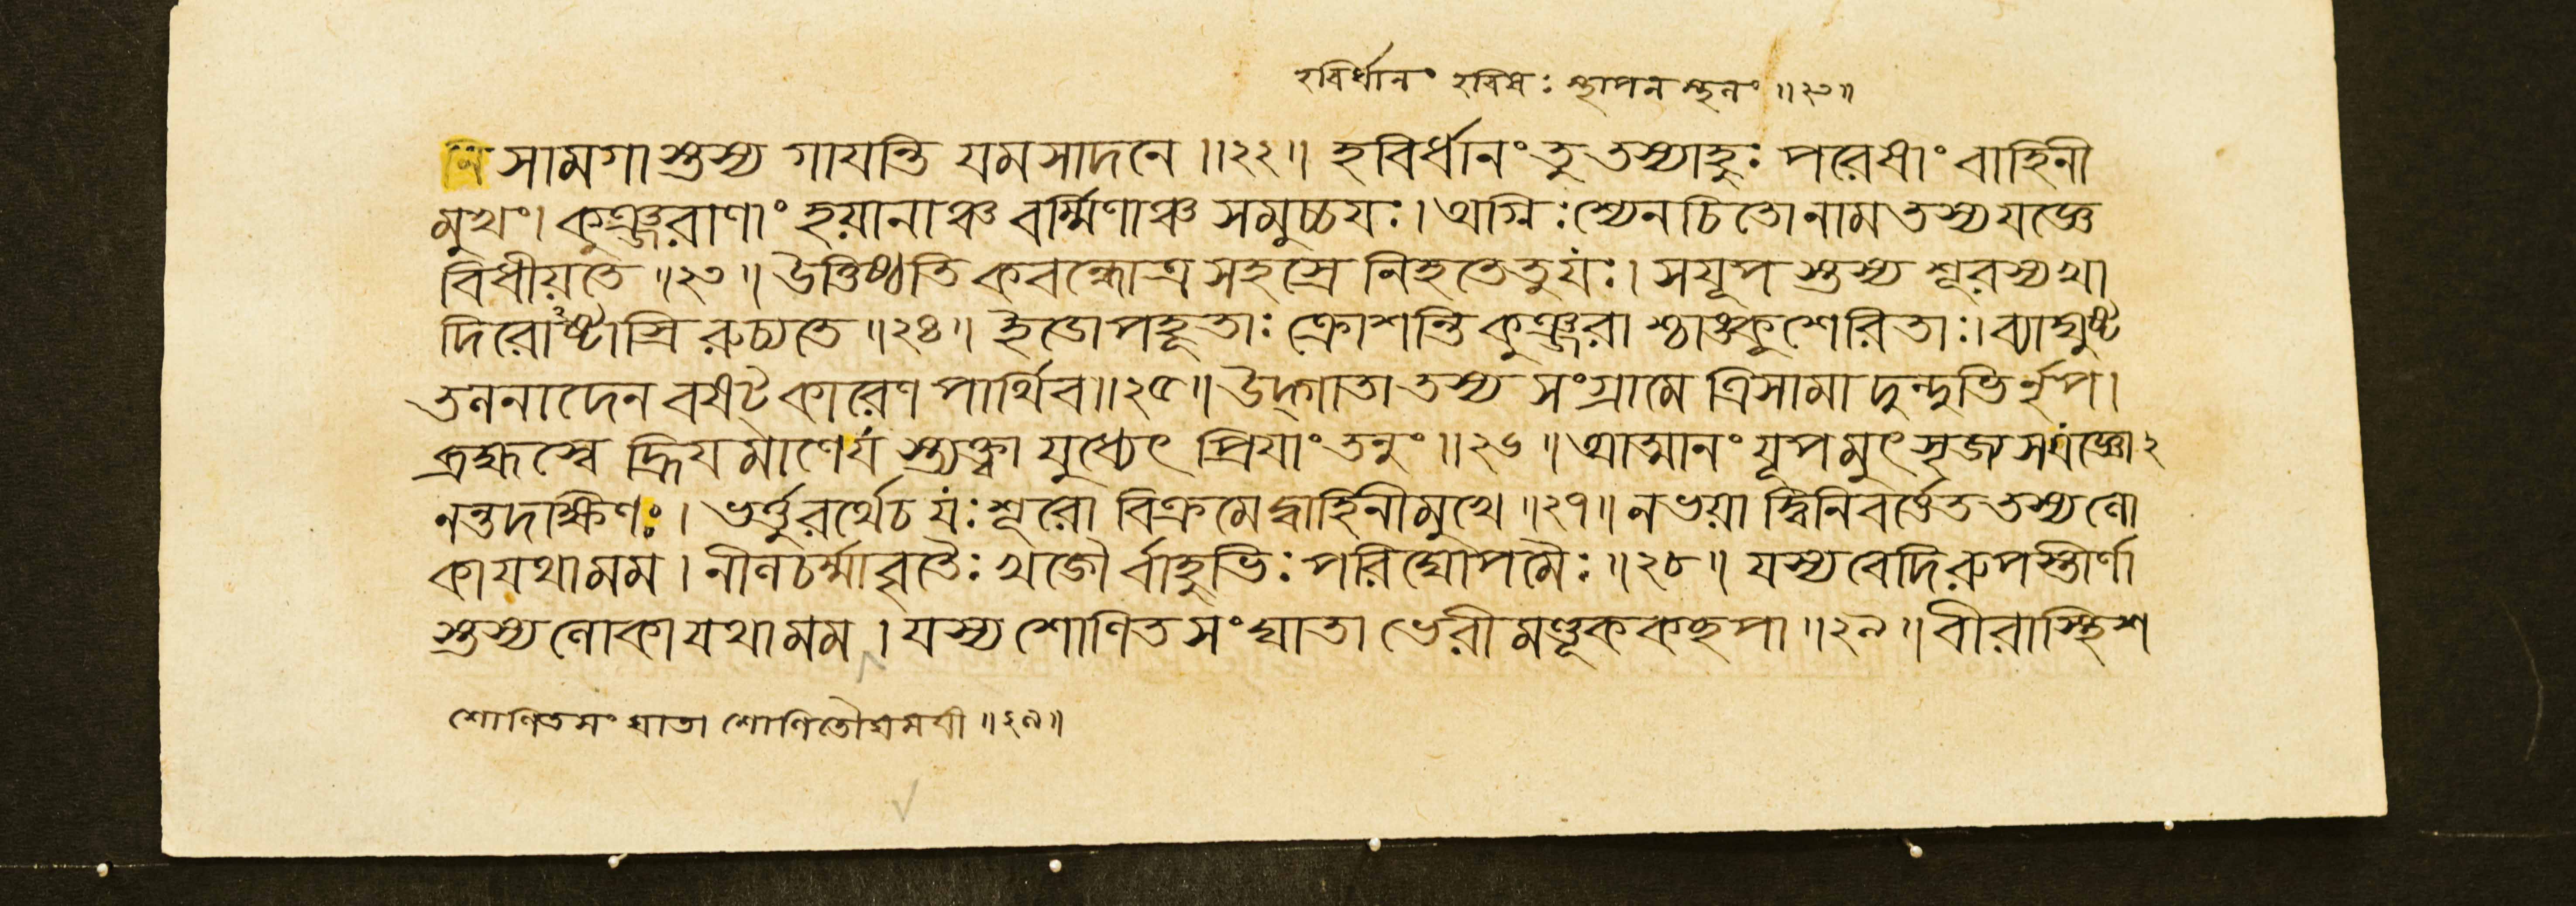 হবির্ধানং হবিষঃ স্থাপনস্থনং ॥২৩॥
নি সামগাস্তস্য গাযন্তি যমসাদনে ॥২২॥ হবির্ধানং তু তস্যাহুঃ পরেষাং বাহিনী
মুখং। কুঞ্জরাণাং হয়ানাঞ্চ বর্ম্মিণাঞ্চ সমুচ্চযঃ। অগ্নিঃ শ্যেনচিতো নাম তস্য যজ্ঞে
বিধীয়তে ॥২৩॥ উত্তিষ্ঠতি কবন্ধোত্র সহস্রে নিহতে তু যঃ। স যূপস্তস্য শূরস্য খা
দিরোঽষ্টাস্রিরুচ্যতে ॥২৪॥ ইডোপহূতাঃ ক্রোশন্তি কুঞ্জরাশ্চাঙ্কুশেরিতাঃ। ব্যাঘুষ্ট
তলনাদেন বষট্কারেণ পার্থিব॥২৫॥ উদ্গাতা তস্য সংগ্রামে ত্রিসামা দুন্দুভির্নৃপ।
ব্রহ্মস্বে হ্রিযমাণে যস্ত্যক্ত্বা যুধ্যেৎ প্রিযাং তনুং ॥২৬॥ আত্মানং যূপমুৎসৃজ্য স যজ্ঞোঽ
নন্তদক্ষিণঃ। ভর্ত্তুরর্থে চ যঃ শূরো বিক্রমেদ্বাহিনীমুখে ॥২৭॥ ন ভয়াদ্বিনিবর্ত্তেত তস্য লো
কা যথা মম। নীলচর্ম্মাবৃতৈঃ খড্গৈর্বাহুভিঃ পরিঘোপমৈঃ ॥২৮॥ যস্য বেদিরুপস্তীর্ণা
স্তস্য লোকা যথা মম। যস্য শোণিতসংঘাতা ভেরীমণ্ডূককচ্ছপা ॥২৯॥ বীরাস্থিশ
শোণিতসংঘাতা শোণিতৌঘমযী ॥২৯॥